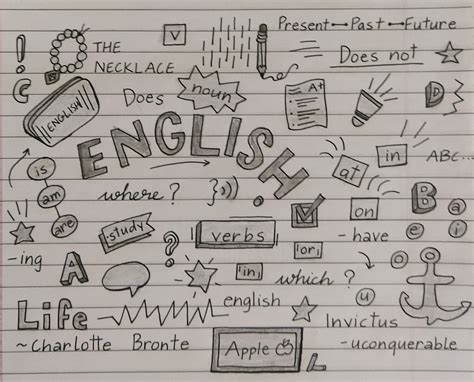 Present Past Future
V
THE
NECKLACE
Does not
C
B
Does
noun
A+
D
ENGLISH
ENGLISH
is
am
are
at
in
ABC...
where?
};))
on
B
a
study
?
verbs
- have
e
i
-ing
'or'
o
A
'in'
which?
u
english
Life
Invictus
~Charlotte Bronte
Apple
-uconquerable
L